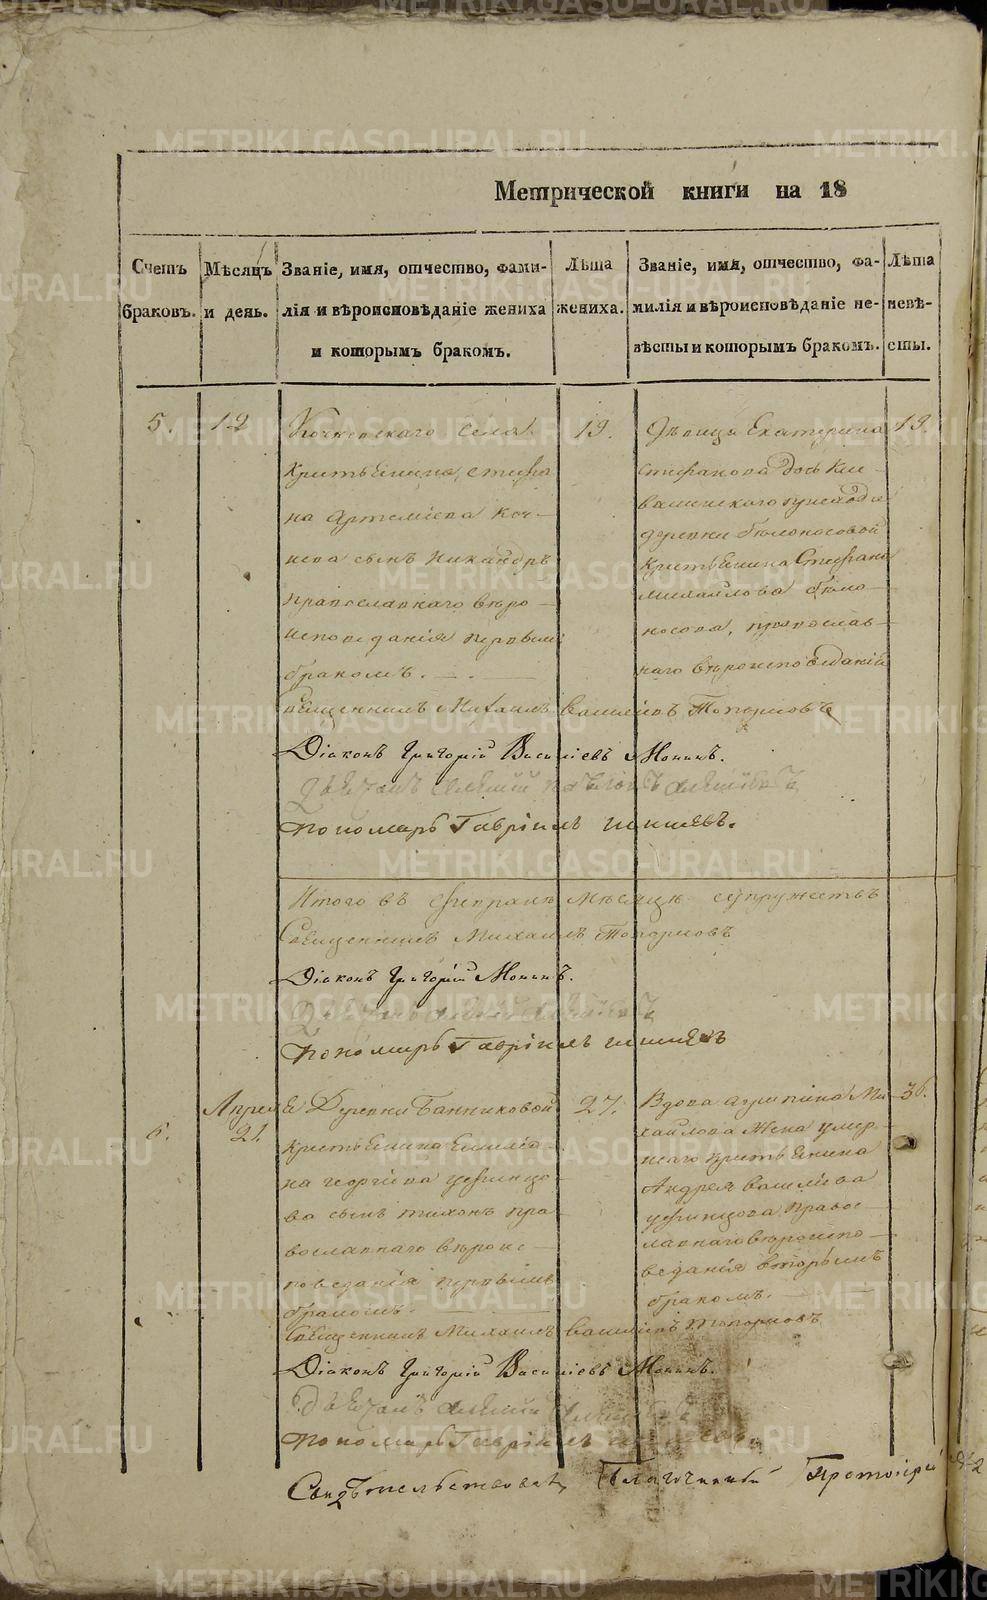 Метрической книги на 18
Счетъ браковъ.
Мѣсяцъ и день.
Званіе, имя, отчество, фами-
лія и вѣроисповѣданіе жениха
и которымъ бракомъ.
Лѣта
жениха.
Званіе, имя, отчество, фа-
милія и вѣроисповѣданіе не-
вѣсты и которымъ бракомъ.
Лѣта
невѣ-
сты.
5.
12
села
Крестьянина, Стефа
на Артеміева Коч-
нева сынъ Никандръ
православнаго вѣро-
исповеданія первымъ
бракомъ.
19.
Дѣвица Екатерина
Стефанова дочь
прихода
деревни Бѣлоносовой
Крестьянина Стефана
Михайлова Бѣло-
носова, православ-
наго вѣроисповѣданія
19.
Священникъ Михаилъ Василіевъ Топорковъ
Діаконъ Григорій Василіевъ Монинъ.
Дьячекъ Алексій
Пономарь Гавріилъ
Итого въ Феврале месяце супружествъ
Священникъ Михаилъ Топорковъ
Діаконъ Григорій Монинъ.
Дьячекъ Алексій
Пономарь Гавріилъ
6.
Апреля
21.
Деревни Банниковой
Крестьянина Емеліа-
на Георгіева
ва сынъ Тихонъ пра
вославнаго вѣроис-
поведанія первымъ
бракомъ.
27.
Вдова Агрипина Ми
хайлова Жена умер-
шаго Крестьянина
Андрея Василіева
Правос-
лавнаго вѣроиспо-
веданія вторымъ
бракомъ.
36.
Священникъ Михаилъ Василіевъ Топорковъ
Діаконъ Григорій Василіевъ Монинъ.
Дьячекъ Алексій
Пономарь Гавріилъ
Свидѣтельствовалъ Благочинный Протоіерей
METRIKI.GASO-URAL.RU